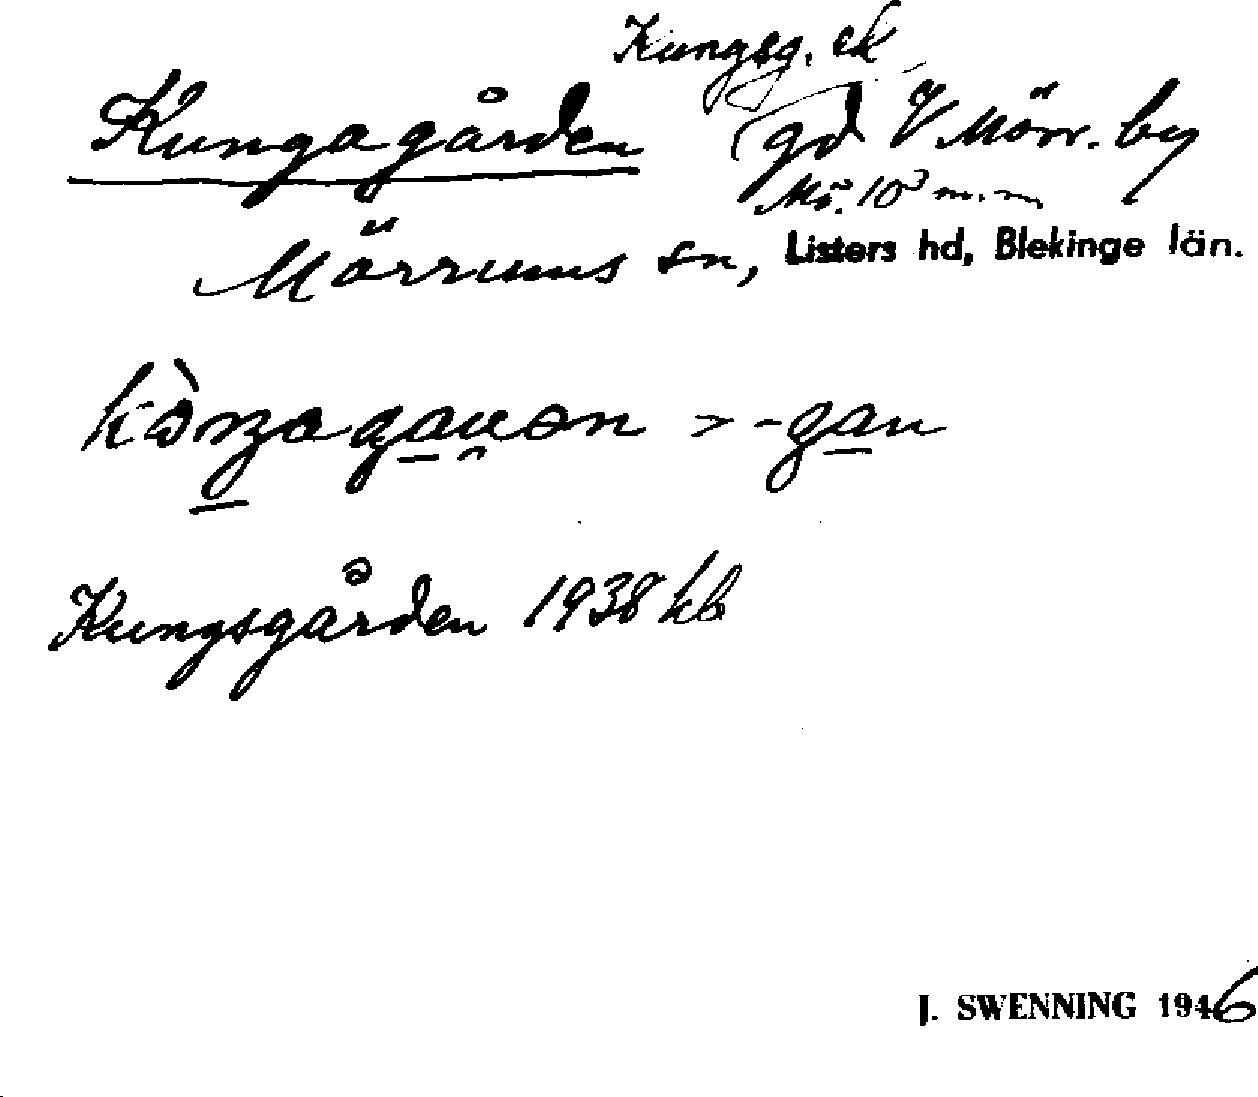 Kungsg. ek
Kungagården gd V Mörr. by
Mö. 10³ m.m.
Mörrums sn, Listers hd, Blekinge län.
Kungsgården 1938 kb
J. SWENNING 1946